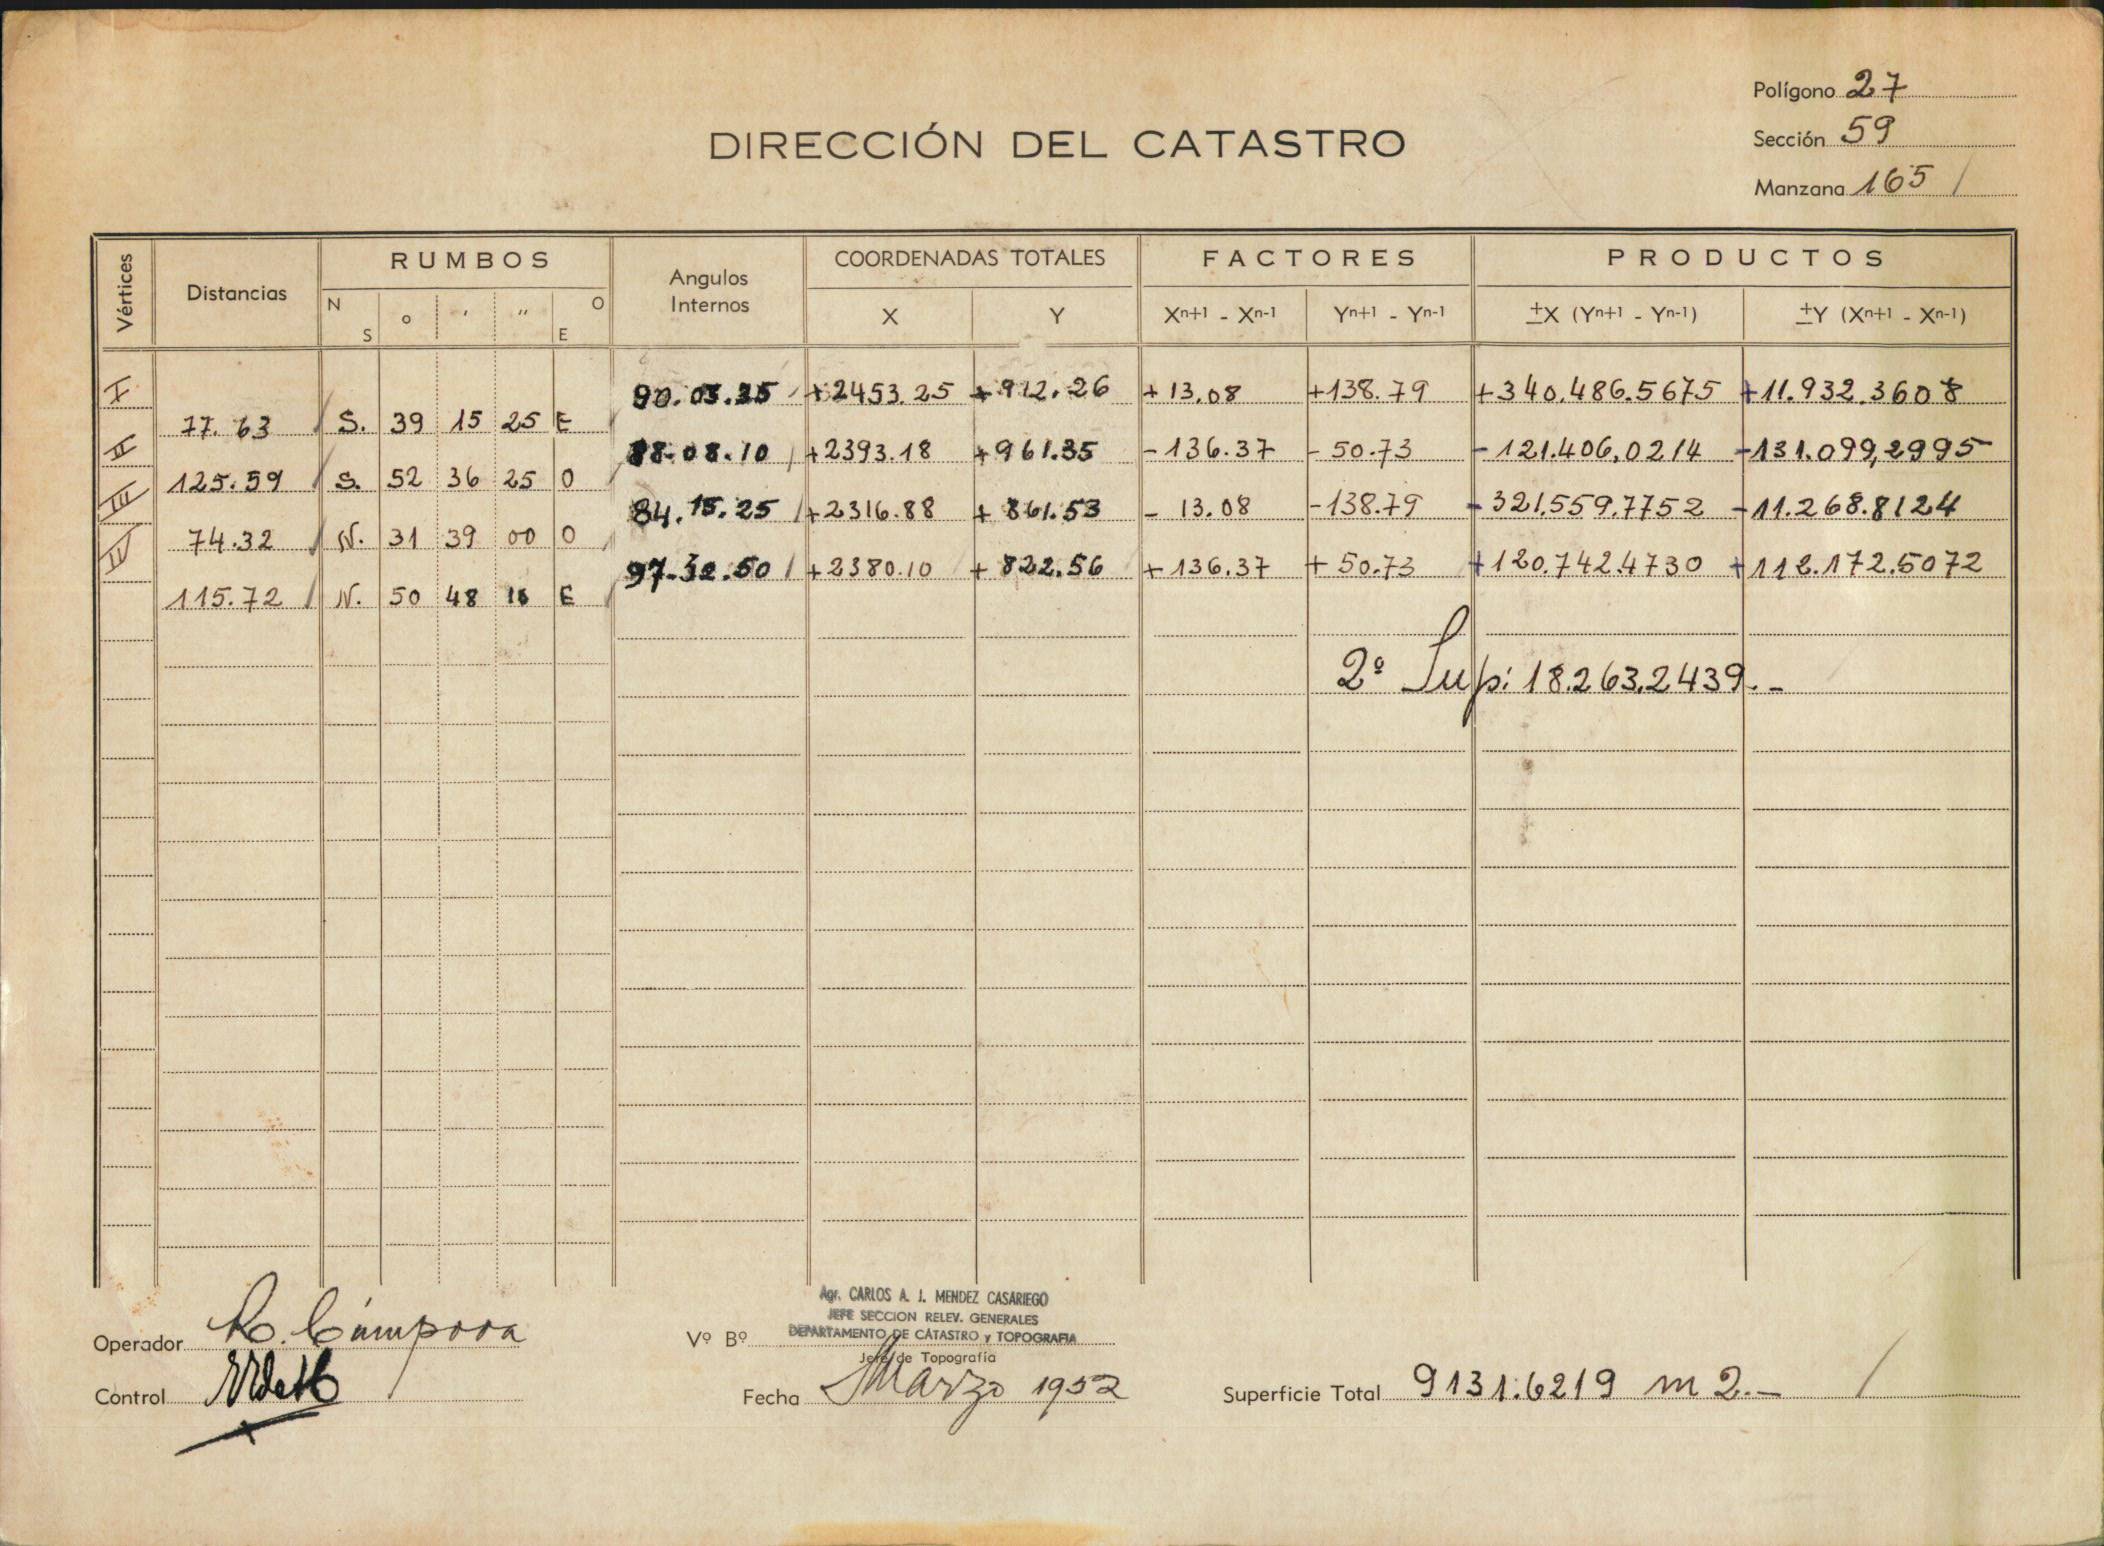 Polígono 27
DIRECCIÓN DEL CATASTRO
Sección 59
Manzana 165 /
Vértices Distancias RUMBOS Angulos Internos COORDENADAS TOTALES FACTORES PRODUCTOS
N S ° ' " O E X Y Xn+1 - Xn-1 Yn+1 - Yn-1 ±X (Yn+1 - Yn-1) ±Y (Xn+1 - Xn-1)
I 90.03.35 +2453.25 +912.26 +13.08 +138.79 +340.486.5675 +11.932.3608
77.63 S. 39 15 25 E
II 88.08.10 +2393.18 +961.35 -136.37 -50.73 -121.406.0214 -131.099,2995
125.59 S. 52 36 25 O
III 84.15.25 +2316.88 +861.53 -13.08 -138.79 -321.559.7752 -11.268.8124
74.32 N. 31 39 00 O
IV 97.32.50 +2380.10 +822.56 +136.37 +50.73 +120.742.4730 +112.172.5072
115.72 N. 50 48 E
2º Sup: 18.263.2439.-
Agr. CARLOS A. J. MENDEZ CASARIEGO
JEFE SECCION RELEV. GENERALES
DEPARTAMENTO DE CATASTRO y TOPOGRAFIA
Operador R. Cámpora Vº Bº
Jefe de Topografía
Control Fecha Marzo 1952 Superficie Total 9131.6219 m2.- /